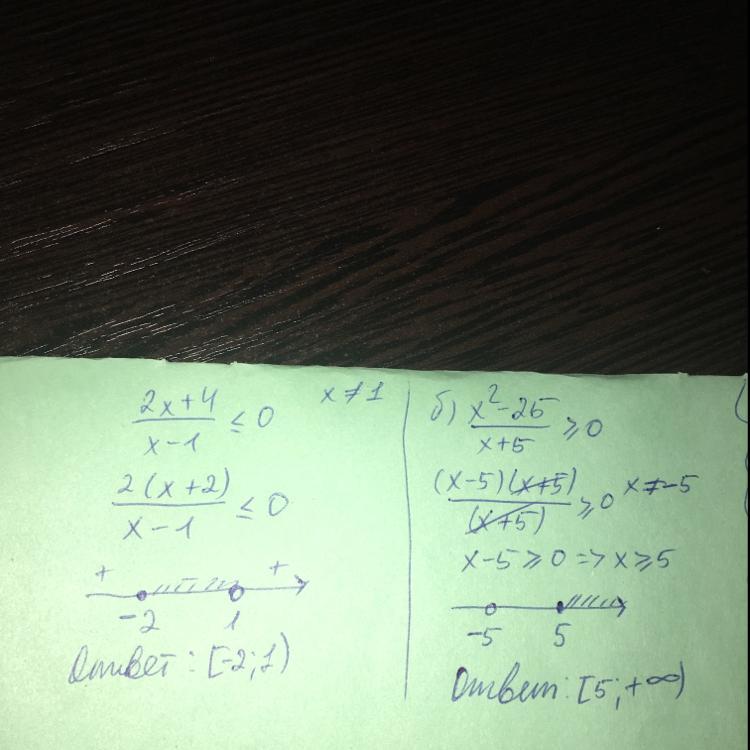 2x+4/x-1 ≤ 0 x ≠ 1
2(x+2)/x-1 ≤ 0
+ +
-2 1
Ответ: [-2; 1)
б) x²-25/x+5 ≥ 0
(x-5)(x+5)/(x+5) ≥ 0 x ≠ -5
x-5 ≥ 0 => x ≥ 5
-5 5
Ответ: [5; +∞)